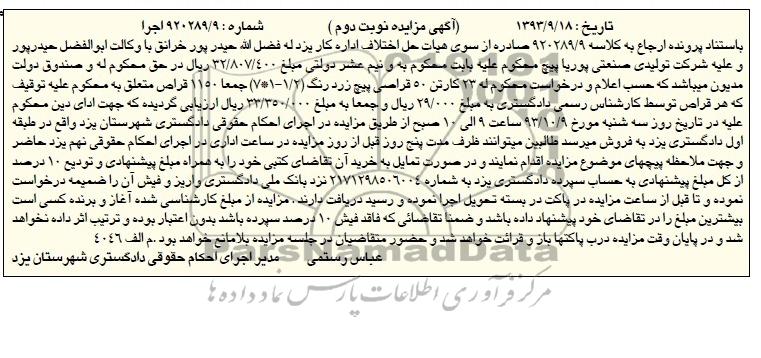 تاریخ : ۱۳۹۳/۹/۱۸ (آگهی مزایده نوبت دوم ) شماره : ۹۲۰۲۸۹/۹ اجرا
باستناد پرونده ارجاع به کلاسه ۹۲۰۲۸۹/۹ صادره از سوی هیات حل اختلاف اداره کار یزد له فضل الله حیدر پور خرانق با وکالت ابوالفضل حیدرپور
و علیه شرکت تولیدی صنعتی پوریا پیچ محکوم علیه بابت محکوم به و نیم عشر دولتی مبلغ ۳۲/۸۰۷/۴۰۰ ریال در حق محکوم له و صندوق دولت
مدیون میباشد که حسب اعلام و درخواست محکوم له ۲۳ کارتن ۵۰ قراصی پیچ زرد رنگ (۱/۲-۱*۷) جمعا ۱۱۵۰ قراص متعلق به محکوم علیه توقیف
که هر قراص توسط کارشناس رسمی دادگستری به مبلغ ۲۹/۰۰۰ ریال و جمعا به مبلغ ۳۳/۳۵۰/۰۰۰ ریال ارزیابی گردیده که جهت ادای دین محکوم
علیه در تاریخ روز سه شنبه مورخ ۹۳/۱۰/۹ ساعت ۹ الی ۱۰ صبح از طریق مزایده در اجرای احکام حقوقی دادگستری شهرستان یزد واقع در طبقه
اول دادگستری یزد به فروش میرسد طالبین میتوانند ظرف مدت پنج روز قبل از روز مزایده در ساعت اداری در اجرای احکام حقوقی نهم یزد حاضر
و جهت ملاحظه پیچهای موضوع مزایده اقدام نمایند و در صورت تمایل به خرید آن تقاضای کتبی خود را به همراه مبلغ پیشنهادی و تودیع ۱۰ درصد
از کل مبلغ پیشنهادی به حساب سپرده دادگستری یزد به شماره ۲۱۷۱۲۹۸۵۰۶۰۰۴ نزد بانک ملی دادگستری واریز و فیش آن را ضمیمه درخواست
نموده و تا قبل از ساعت مزایده در پاکت در بسته تحویل اجرا نموده و رسید دریافت دارند . مزایده از مبلغ کارشناسی شده آغاز و برنده کسی است
بیشترین مبلغ را در تقاضای خود پیشنهاد داده باشد و ضمنا تقاضائی که فاقد فیش ۱۰ درصد سپرده باشد بدون اعتبار بوده و ترتیب اثر داده نخواهد
شد و در پایان وقت مزایده درب پاکتها باز و قرائت خواهد شد و حضور متقاضیان در جلسه مزایده بلامانع خواهد بود .م الف ۴۰۴۶
عباس رستمی مدیر اجرای احکام حقوقی دادگستری شهرستان یزد
ParsNamadData
مرکز فرآوری اطلاعات پارس نماد داده ها